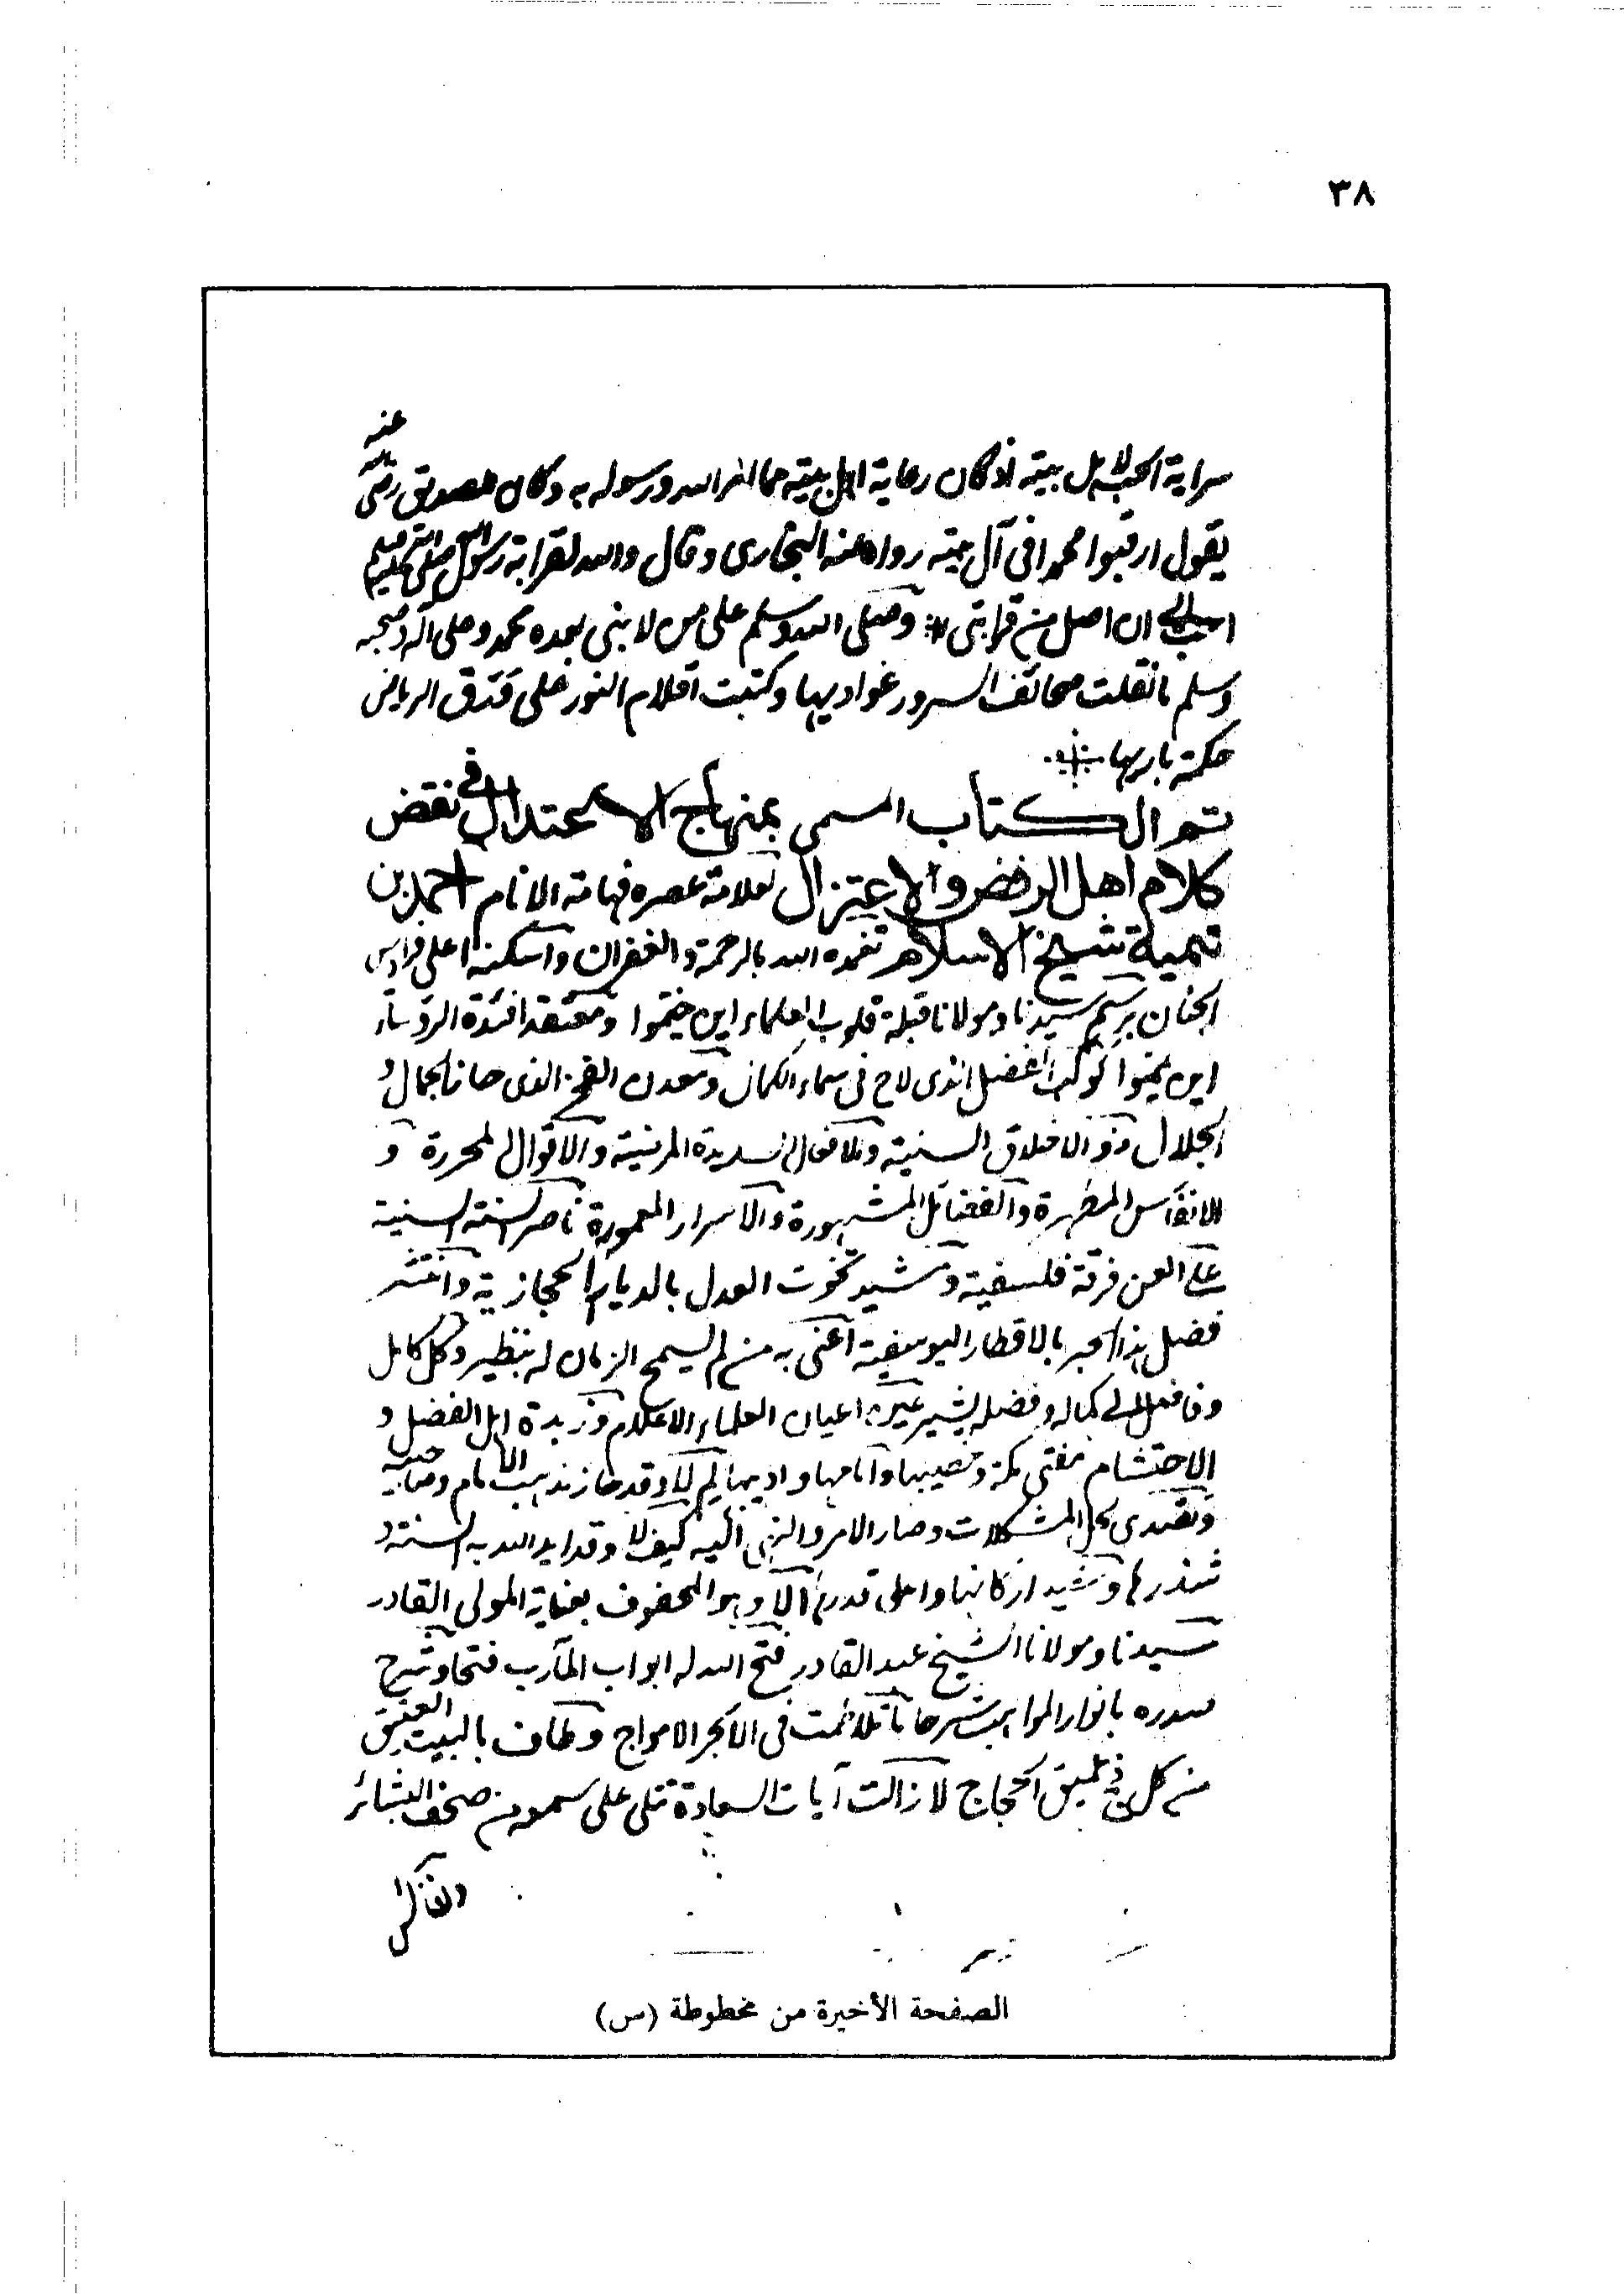 ٣٨
سراية الحب لاهل بيته اذ كان رعاية اهل بيته مما امر الله ورسوله به وكان الصديق رضي الله عنه
يقول ارقبوا محمدا في آل بيته رواه عنه البخاري وقال والله لقرابة رسول الله صلى الله عليه وسلم
احب الي ان اصل من قرابتي وصلى الله وسلم على من لا نبي بعده محمد وعلى آله وصحبه
وسلم ما نقلت صحائف السرور غواديها وكتبت اقلام النور على ورق الرياض
حكمة باريها
تم الكتاب المسمى بمنهاج الاعتدال في نقض
كلام اهل الرفض والاعتزال لعلامة عصره فهامة الانام احمد بن
تيمية شيخ الاسلام تغمده الله بالرحمة والغفران واسكنه اعلى فراديس
الجنان برسم سيدنا ومولانا قبلة قلوب العلماء اين خيموا ومعتقد افئدة الرؤساء
اين يمموا كوكب الفضل الذي لاح في سماء الكمال ومعدن الفخر الذي حاز الجمال و
الجلال ذو الاخلاق السنية والافعال السديدة المرضية والاقوال المحررة و
الانفاس المطهرة والفضائل المشهورة والاسرار المعمورة ناصر السنة السنية
على العن فرقة فلسفية ومشيد تخوت العدل بالديار الحجازية وانتشر
فضل هذا الحبر بالاقطار اليوسفية اعني به من لم يسمح الزمان له بنظير وكل كامل
وفاضل الى كماله وفضله يشير عين اعيان العلماء الاعلام وزبدة اهل الفضل و
الاحتشام مفتي مكة وخطيبها وامامها واديبها لم لا وقد حاز مذهب الامام وصاحبيه
وتصدى لحل المشكلات وصار الامر والنهي اليه كيف لا وقد ايد الله به السنة و
شيد اركانها واعلى قدرها الا وهو المحفوف بعناية المولى القادر
سيدنا ومولانا الشيخ عبد القادر فتح الله له ابواب المآرب فتحا وشرح
صدره بانوار المواهب شرحا ما تلاطمت في الابحر الامواج وطاف بالبيت العتيق
من كل فج عميق الحجاج لا زالت آيات السعادة تتلى على سمعه من صحف البشائر
الصفحة الأخيرة من مخطوطة (س)